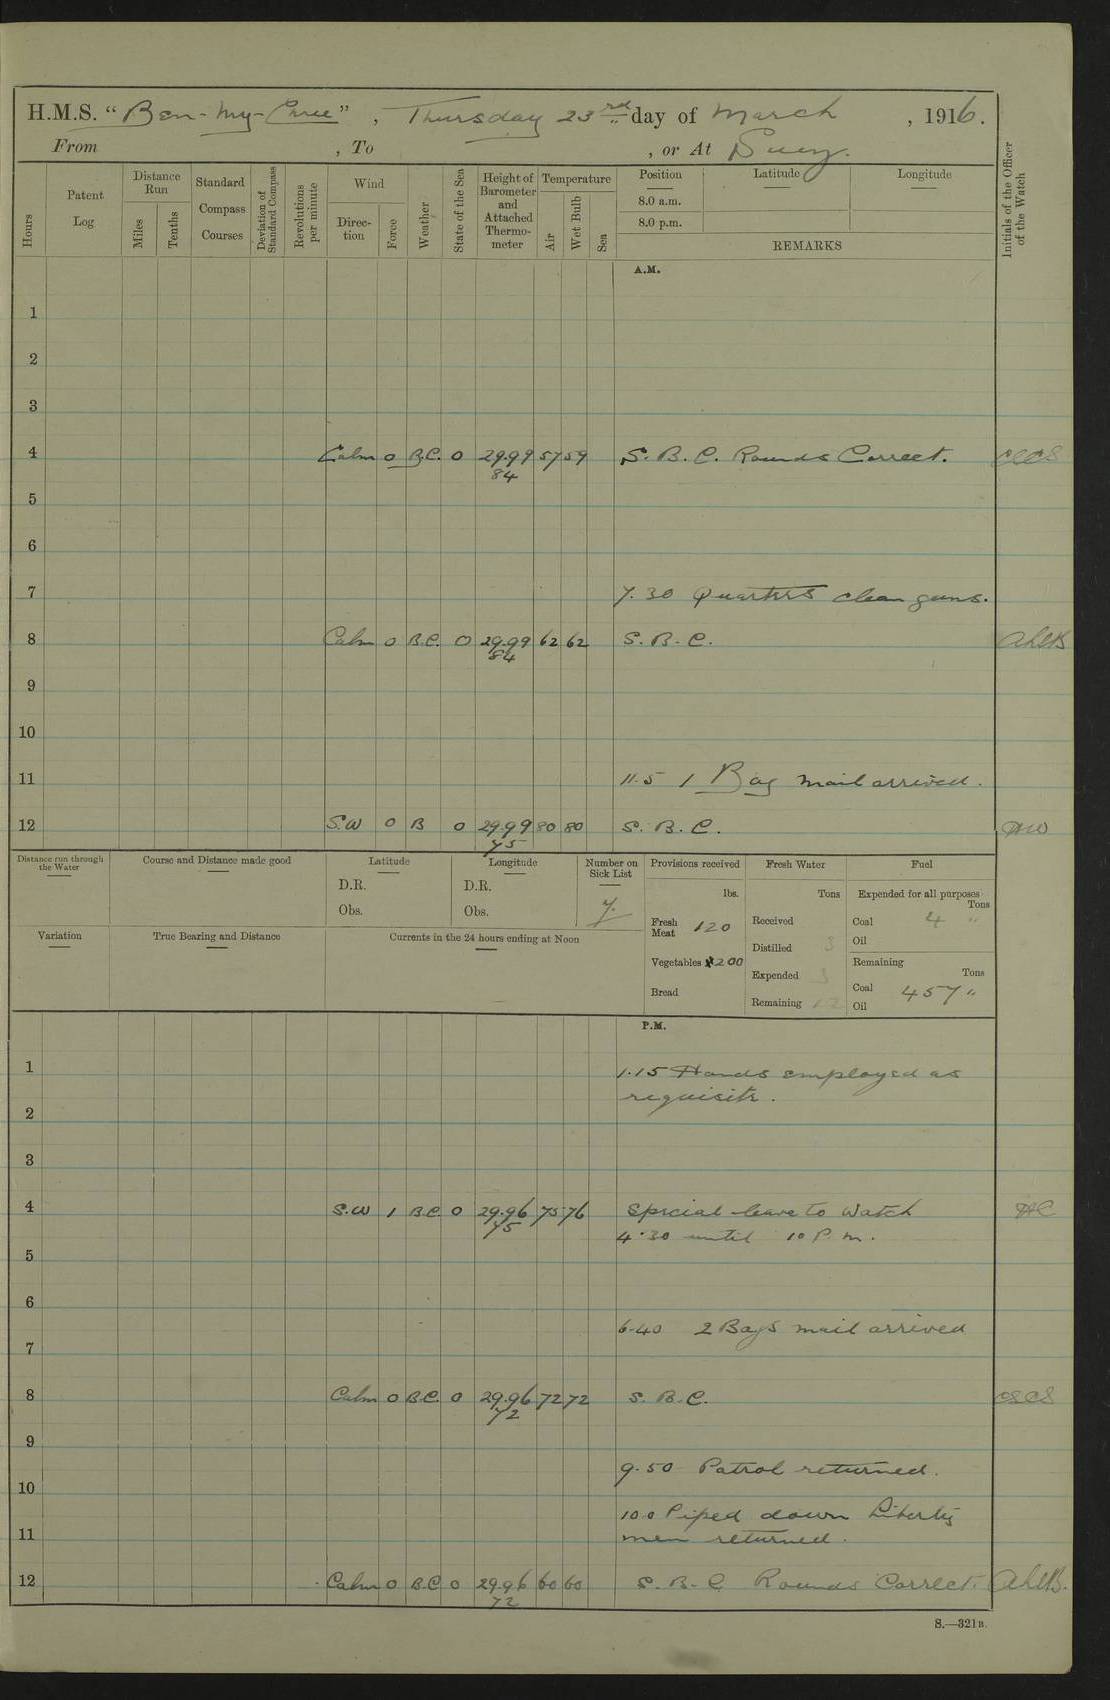 H.M.S. “Ben-My-Chree”, Thursday 23rd day of March, 1916.
From , To , or At Suez.
Hours
Patent Log
Distance Run
Miles
Tenths
Standard Compass Courses
Deviation of Standard Compass
Revolutions per minute
Wind
Direction
Force
Weather
State of the Sea
Height of Barometer and Attached Thermometer
Temperature
Air
Wet Bulb
Sea
Position
8.0 a.m.
8.0 p.m.
Latitude
Longitude
REMARKS
Initials of the Officer of the Watch
A.M.
1
2
3
4 Calm 0 B.C. 0 29.99 57 59 S. B. C. Rounds Correct.
84
5
6
7 7.30 Quarters clean guns.
8 Calm 0 B.C. 0 29.99 62 62 S. B. C. AhWB
84
9
10
11 11.5 1 Bag mail arrived.
12 S.W 0 B 0 29.99 80 80 S. B. C.
75
Distance run through the Water
Course and Distance made good
Latitude
D.R.
Obs.
Longitude
D.R.
Obs.
Number on Sick List
7.
Provisions received
lbs.
Fresh Meat 120
Vegetables 200
Bread
Fresh Water
Tons
Received
Distilled 3
Expended 3
Remaining
Fuel
Expended for all purposes
Tons
Coal 4 "
Oil
Remaining
Tons
Coal 457 "
Oil
Variation
True Bearing and Distance
Currents in the 24 hours ending at Noon
P.M.
1 1.15 Hands employed as
requisite.
2
3
4 S.W 1 B.C. 0 29.96 75 76 Special leave to watch HC
75 4.30 until 10 P.m.
5
6
6.40 2 Bags mail arrived
7
8 Calm 0 B.C. 0 29.96 72 72 S. B. C. CSCS
72
9
9.50 Patrol returned.
10
10.0 Piped down Liberty
11 men returned.
12 Calm 0 B.C 0 29.96 60 60 S. B. C. Rounds Correct. AhWB.
72
S.—321B.